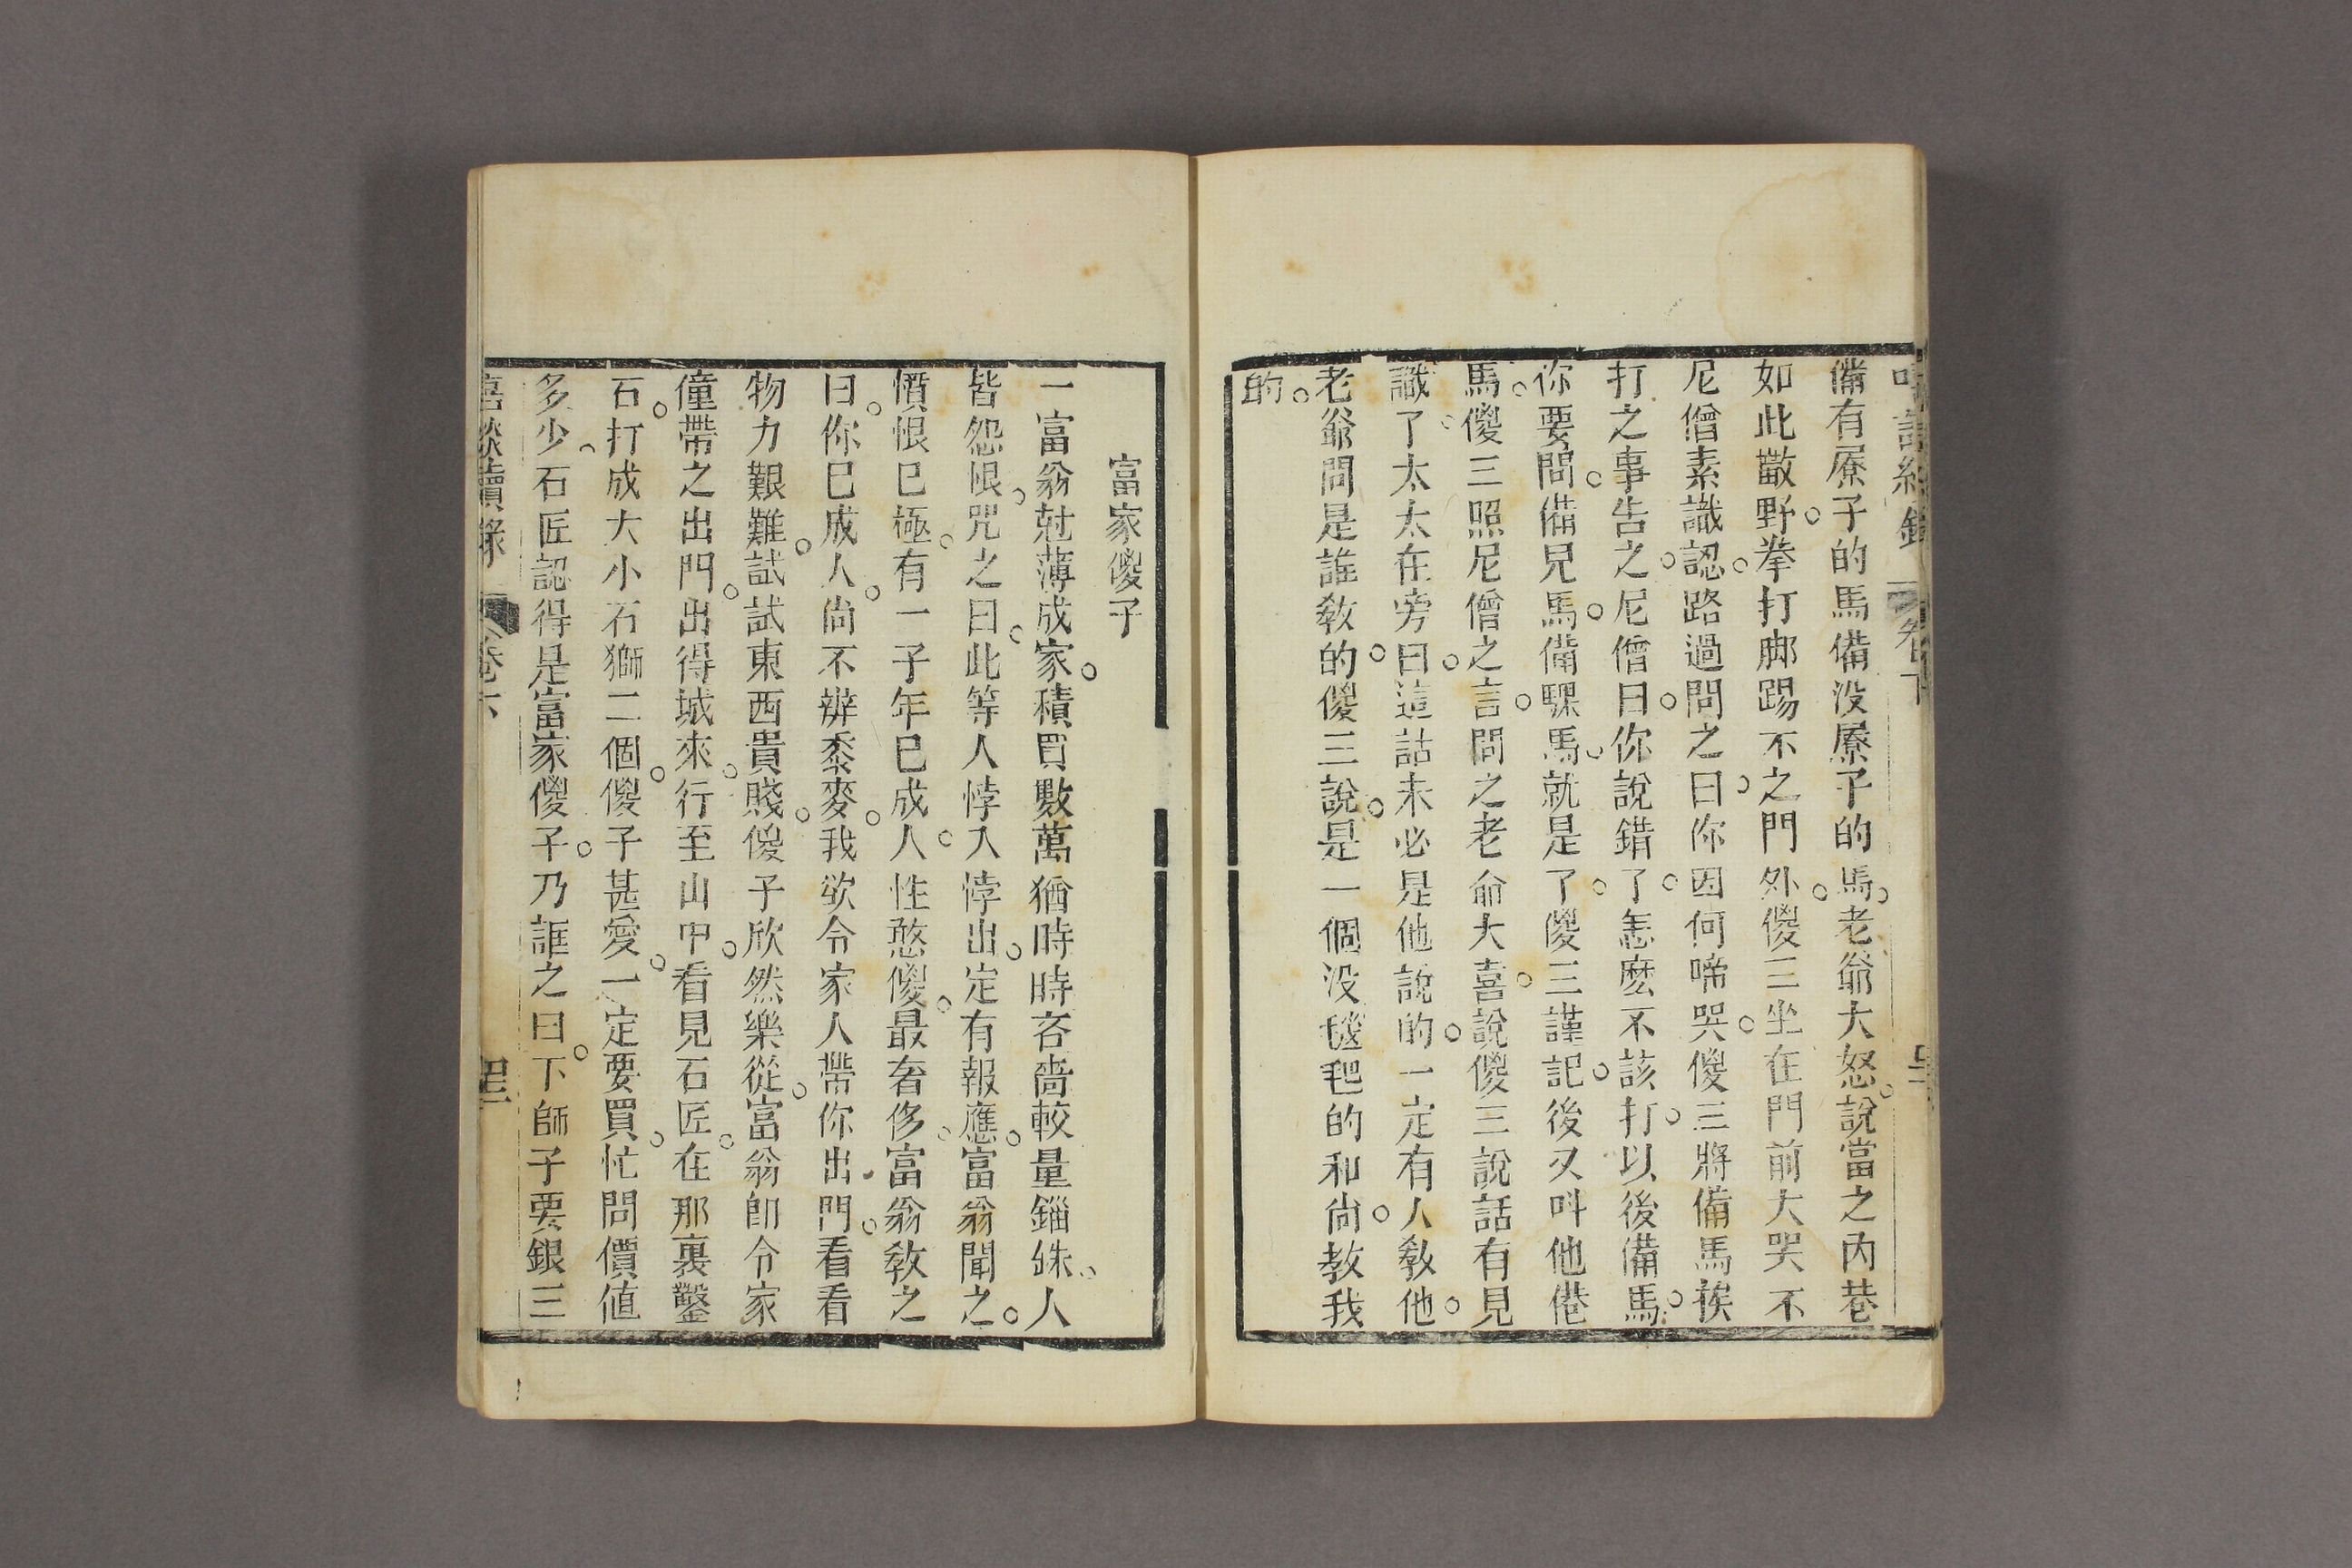 備有㞗子的馬備没㞗子的馬老爺大怒說當之内巷
如此歡野拳打脚踢不之門外傻三坐在門前大哭不
尼僧素識認路過問之曰你因何啼哭傻三將備馬挨
打之事告之尼僧曰你說錯了怎麽不該打以後備馬
你要問備兒馬備騍馬就是了傻三謹記後又呌他俻
馬傻三照尼僧之言問之老爺大喜說傻三說話有見
識了太太在旁曰這話未必是他說的一定有人教他
老爺問是誰教的傻三說是一個没毬毢的和尚教我
的
富家傻子
一富翁尅薄成家積買數萬猶時時吝嗇較量錙銖人
皆怨恨咒之曰此等人悖入悖出定有報應富翁聞之
憤恨已極有一子年已成人性憨傻最奢侈富翁教之
曰你已成人尚不辨黍麥我欲令家人帶你出門看看
物力艱難試試東西貴賤傻子欣然樂從富翁卽令家
僮帶之出門出得城來行至山中看見石匠在那裏鑿
石打成大小石獅二個傻子甚愛一定要買忙問價值
多少石匠認得是富家傻子乃誆之曰下師子要銀三